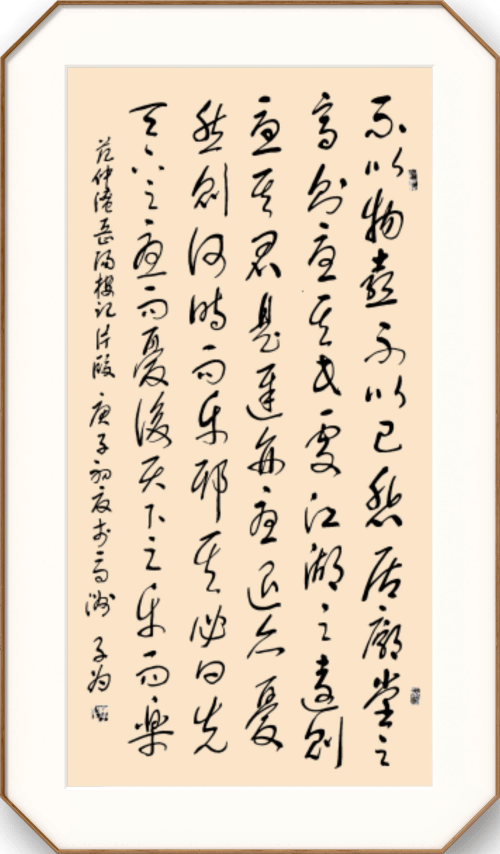 不以物喜不以己悲居廟堂之
高則憂其民處江湖之遠則
憂其君是進亦憂退亦憂
然則何時而樂耶其必曰先
天下之憂而憂後天下之樂而樂
范仲淹岳陽樓記片段 庚子初夏於高洲 子为